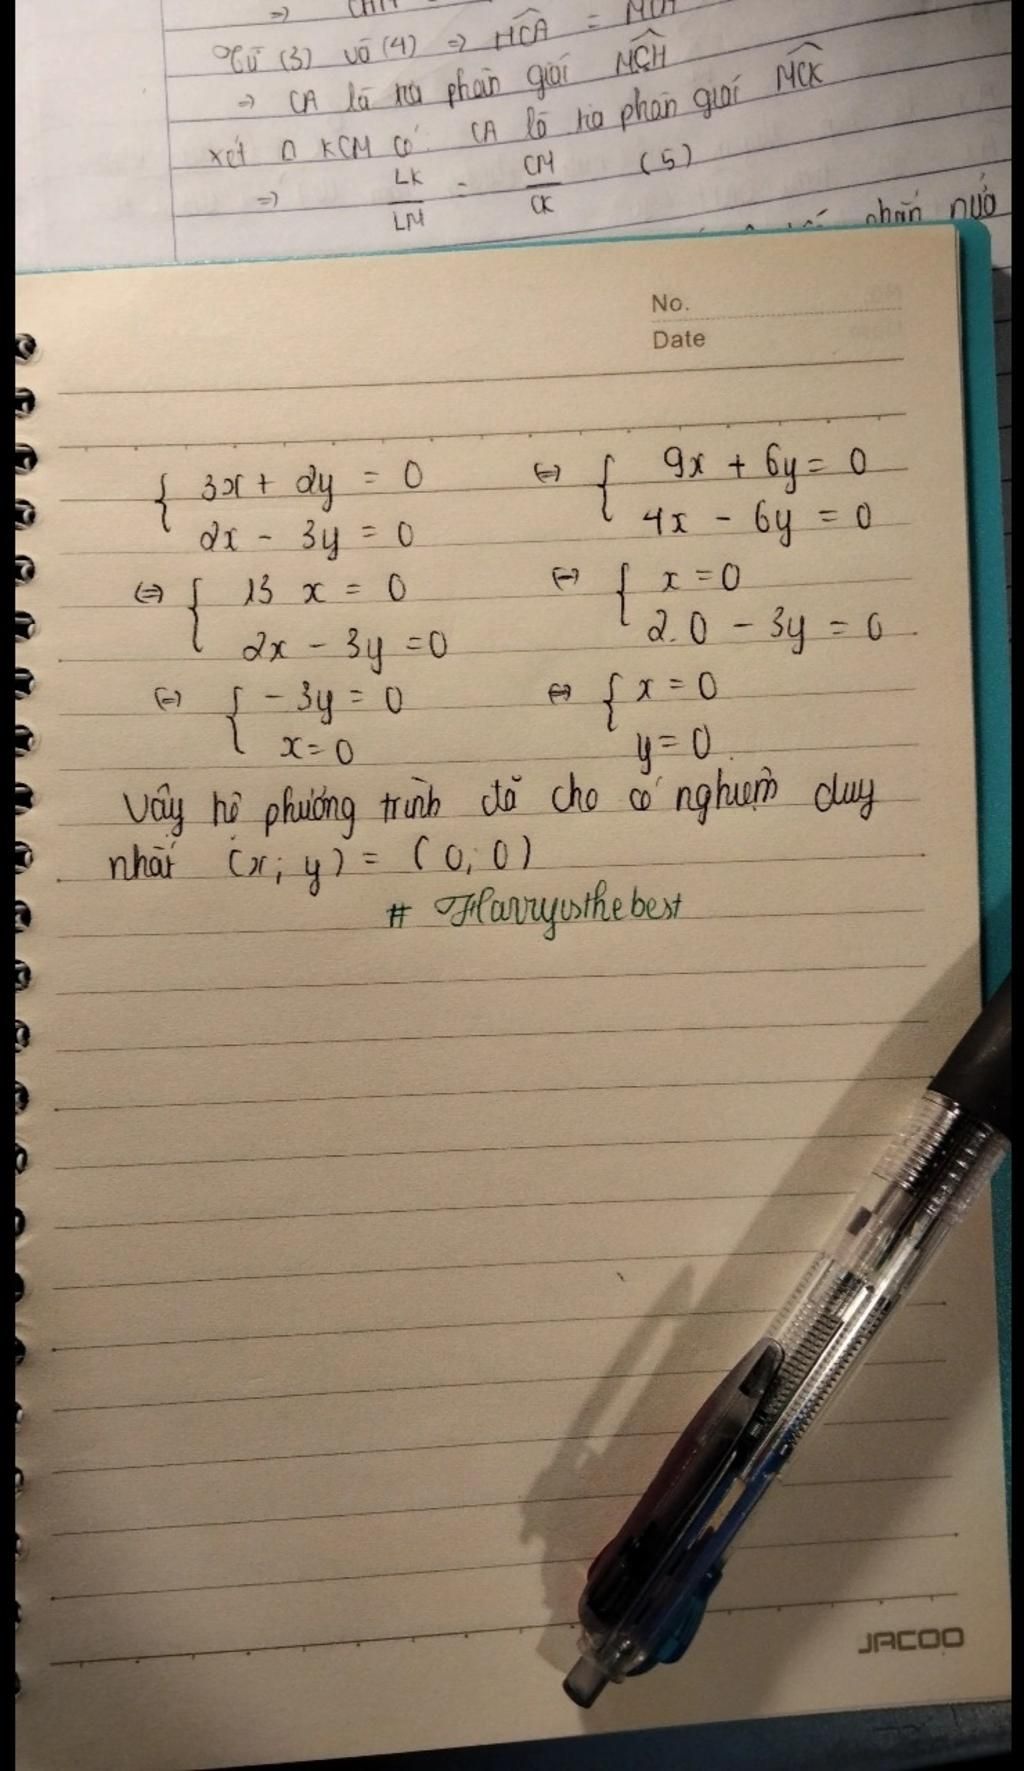 =>
Từ (3) và (4) => HCA =
=> CA là tia phân giác MCH
xét Δ KCM có CA là tia phân giác MCK
=> LK/LM = CM/CK (5)
phân
No.
Date
{ 3x + 2y = 0 (=) { 9x + 6y = 0
2x - 3y = 0 4x - 6y = 0
(=) { 13 x = 0 (=) { x = 0
2x - 3y = 0 2.0 - 3y = 0
(=) { - 3y = 0 (=) { x = 0
x = 0 y = 0.
Vậy hệ phương trình đã cho có nghiệm duy
nhất (x; y) = (0; 0)
# Harryisthebest
JACOO